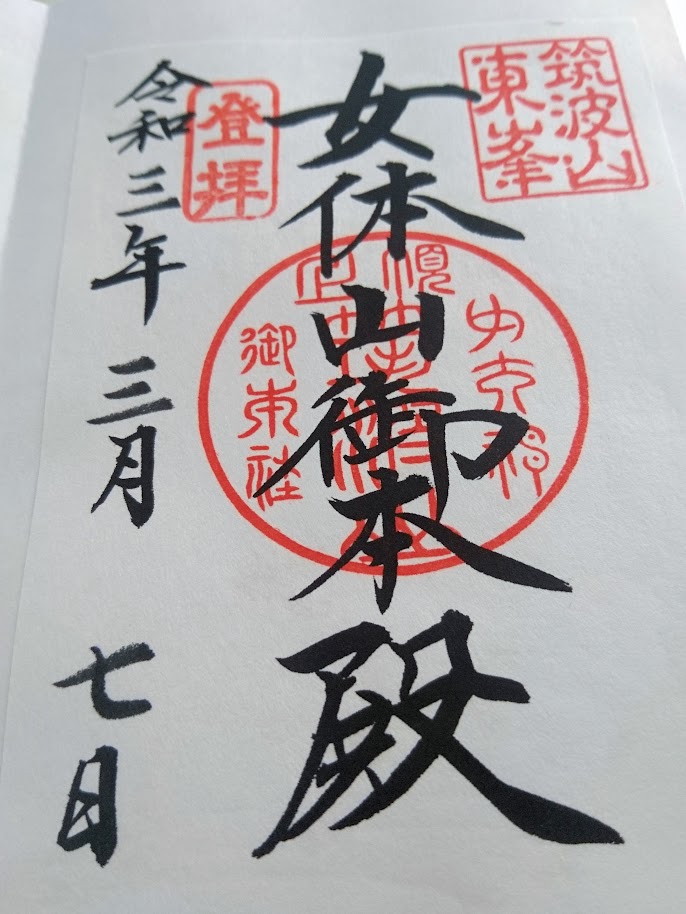 筑波山
東峯
女体山御本殿
登拝
御本社
令和三年 三月 七日